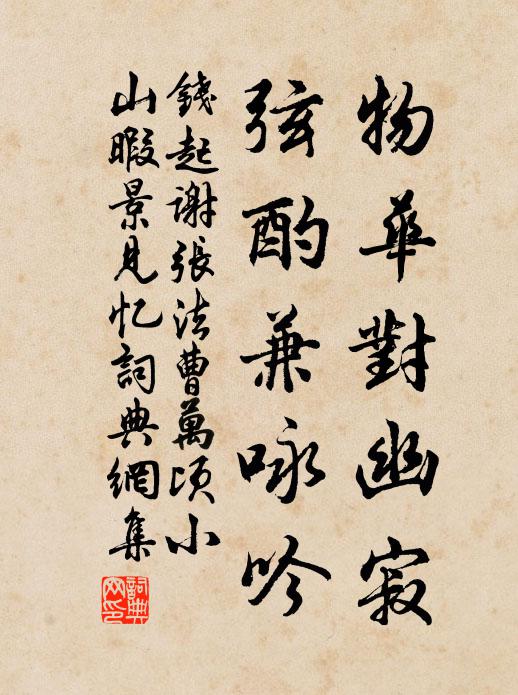 物華對幽寂
弦酌兼咏吟
錢起謝張法曹萬頃小
山暇景見忆詞典網集
詞典网印